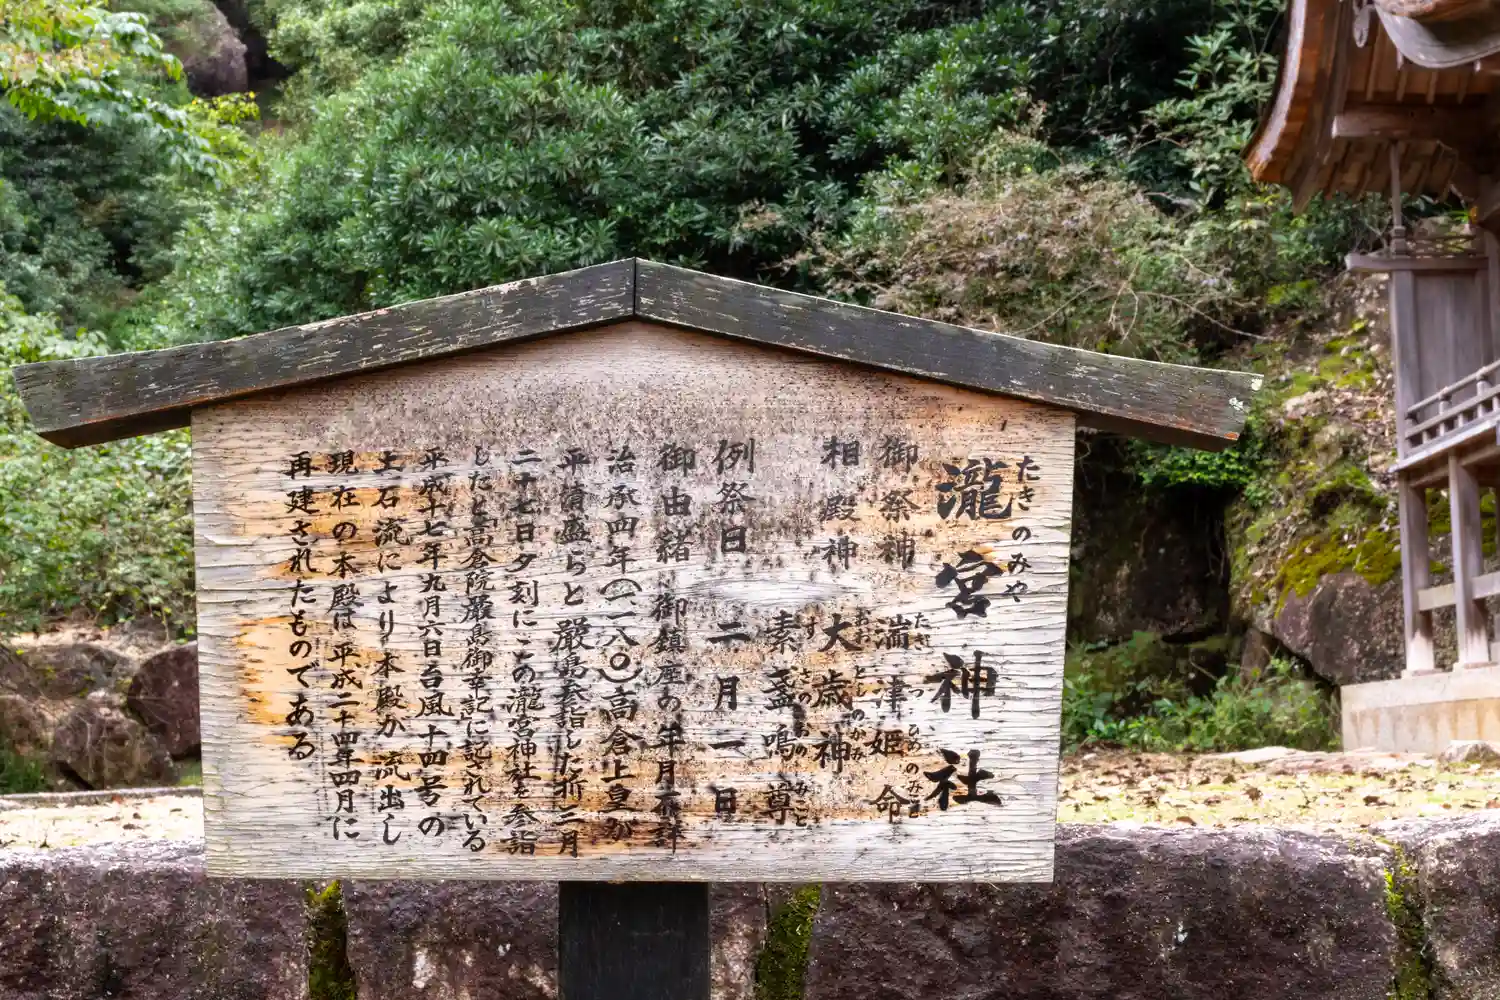 瀧宮神社
たきのみや
御祭神 湍津姫命
たぎつひめのみこと
相殿神 大歳神
おおとしのかみ
素盞鳴尊
すさのおのみこと
例祭日 二月一日
御由緒 御鎮座の年月不詳
治承四年(一一八〇)高倉上皇が
平清盛らと厳島参詣した折三月
二十七日夕刻にこの瀧宮神社を参詣
したと高倉院厳島御幸記に記されている
平成十七年九月六日台風十四号の
土石流により本殿が流出し
現在の本殿は平成二十四年四月に
再建されたものである